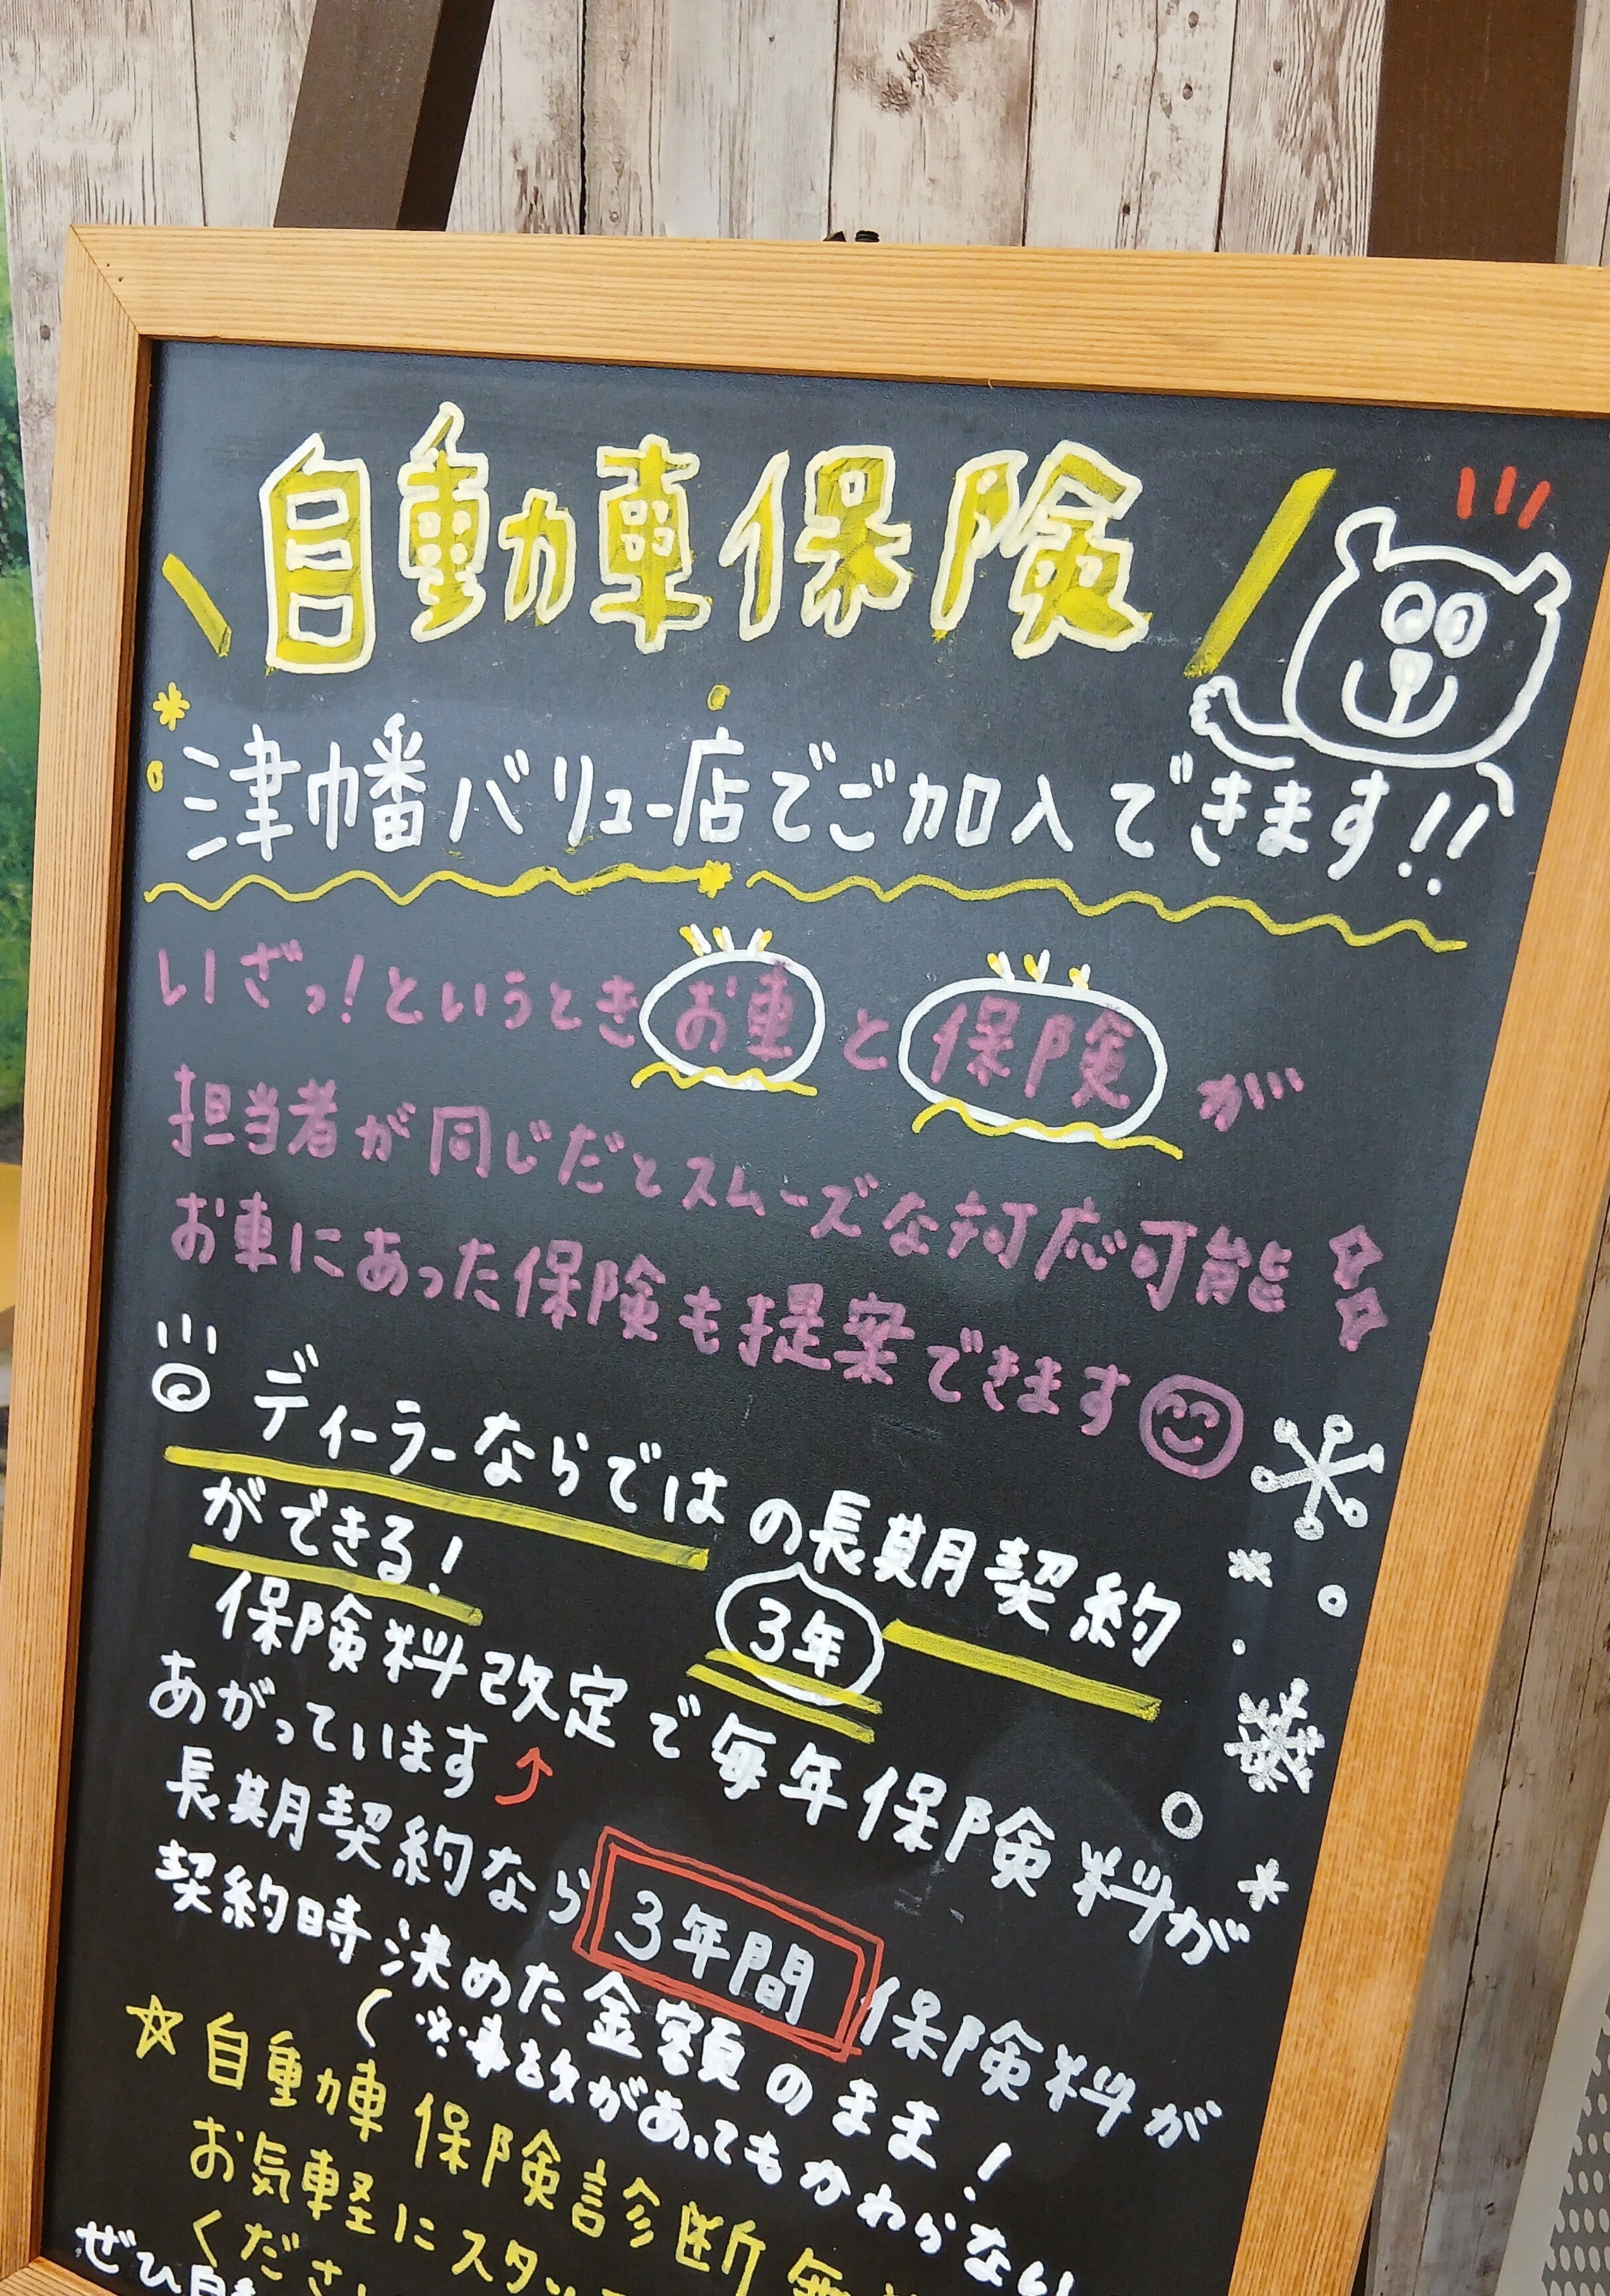 自動車保険
津幡バリュー店でご加入できます!!
いざっ!というときお車と保険が
担当者が同じだとスムーズな対応可能
お車にあった保険も提案できます
ディーラーならではの長期契約
3年
ができる!
保険料改定で毎年保険料が
あがっています
長期契約なら3年間保険料が
契約時決めた金額のまま!
(※事故があってもかわらない
☆自動車保険診断無
お気軽にスタッ
くださ
ぜひ